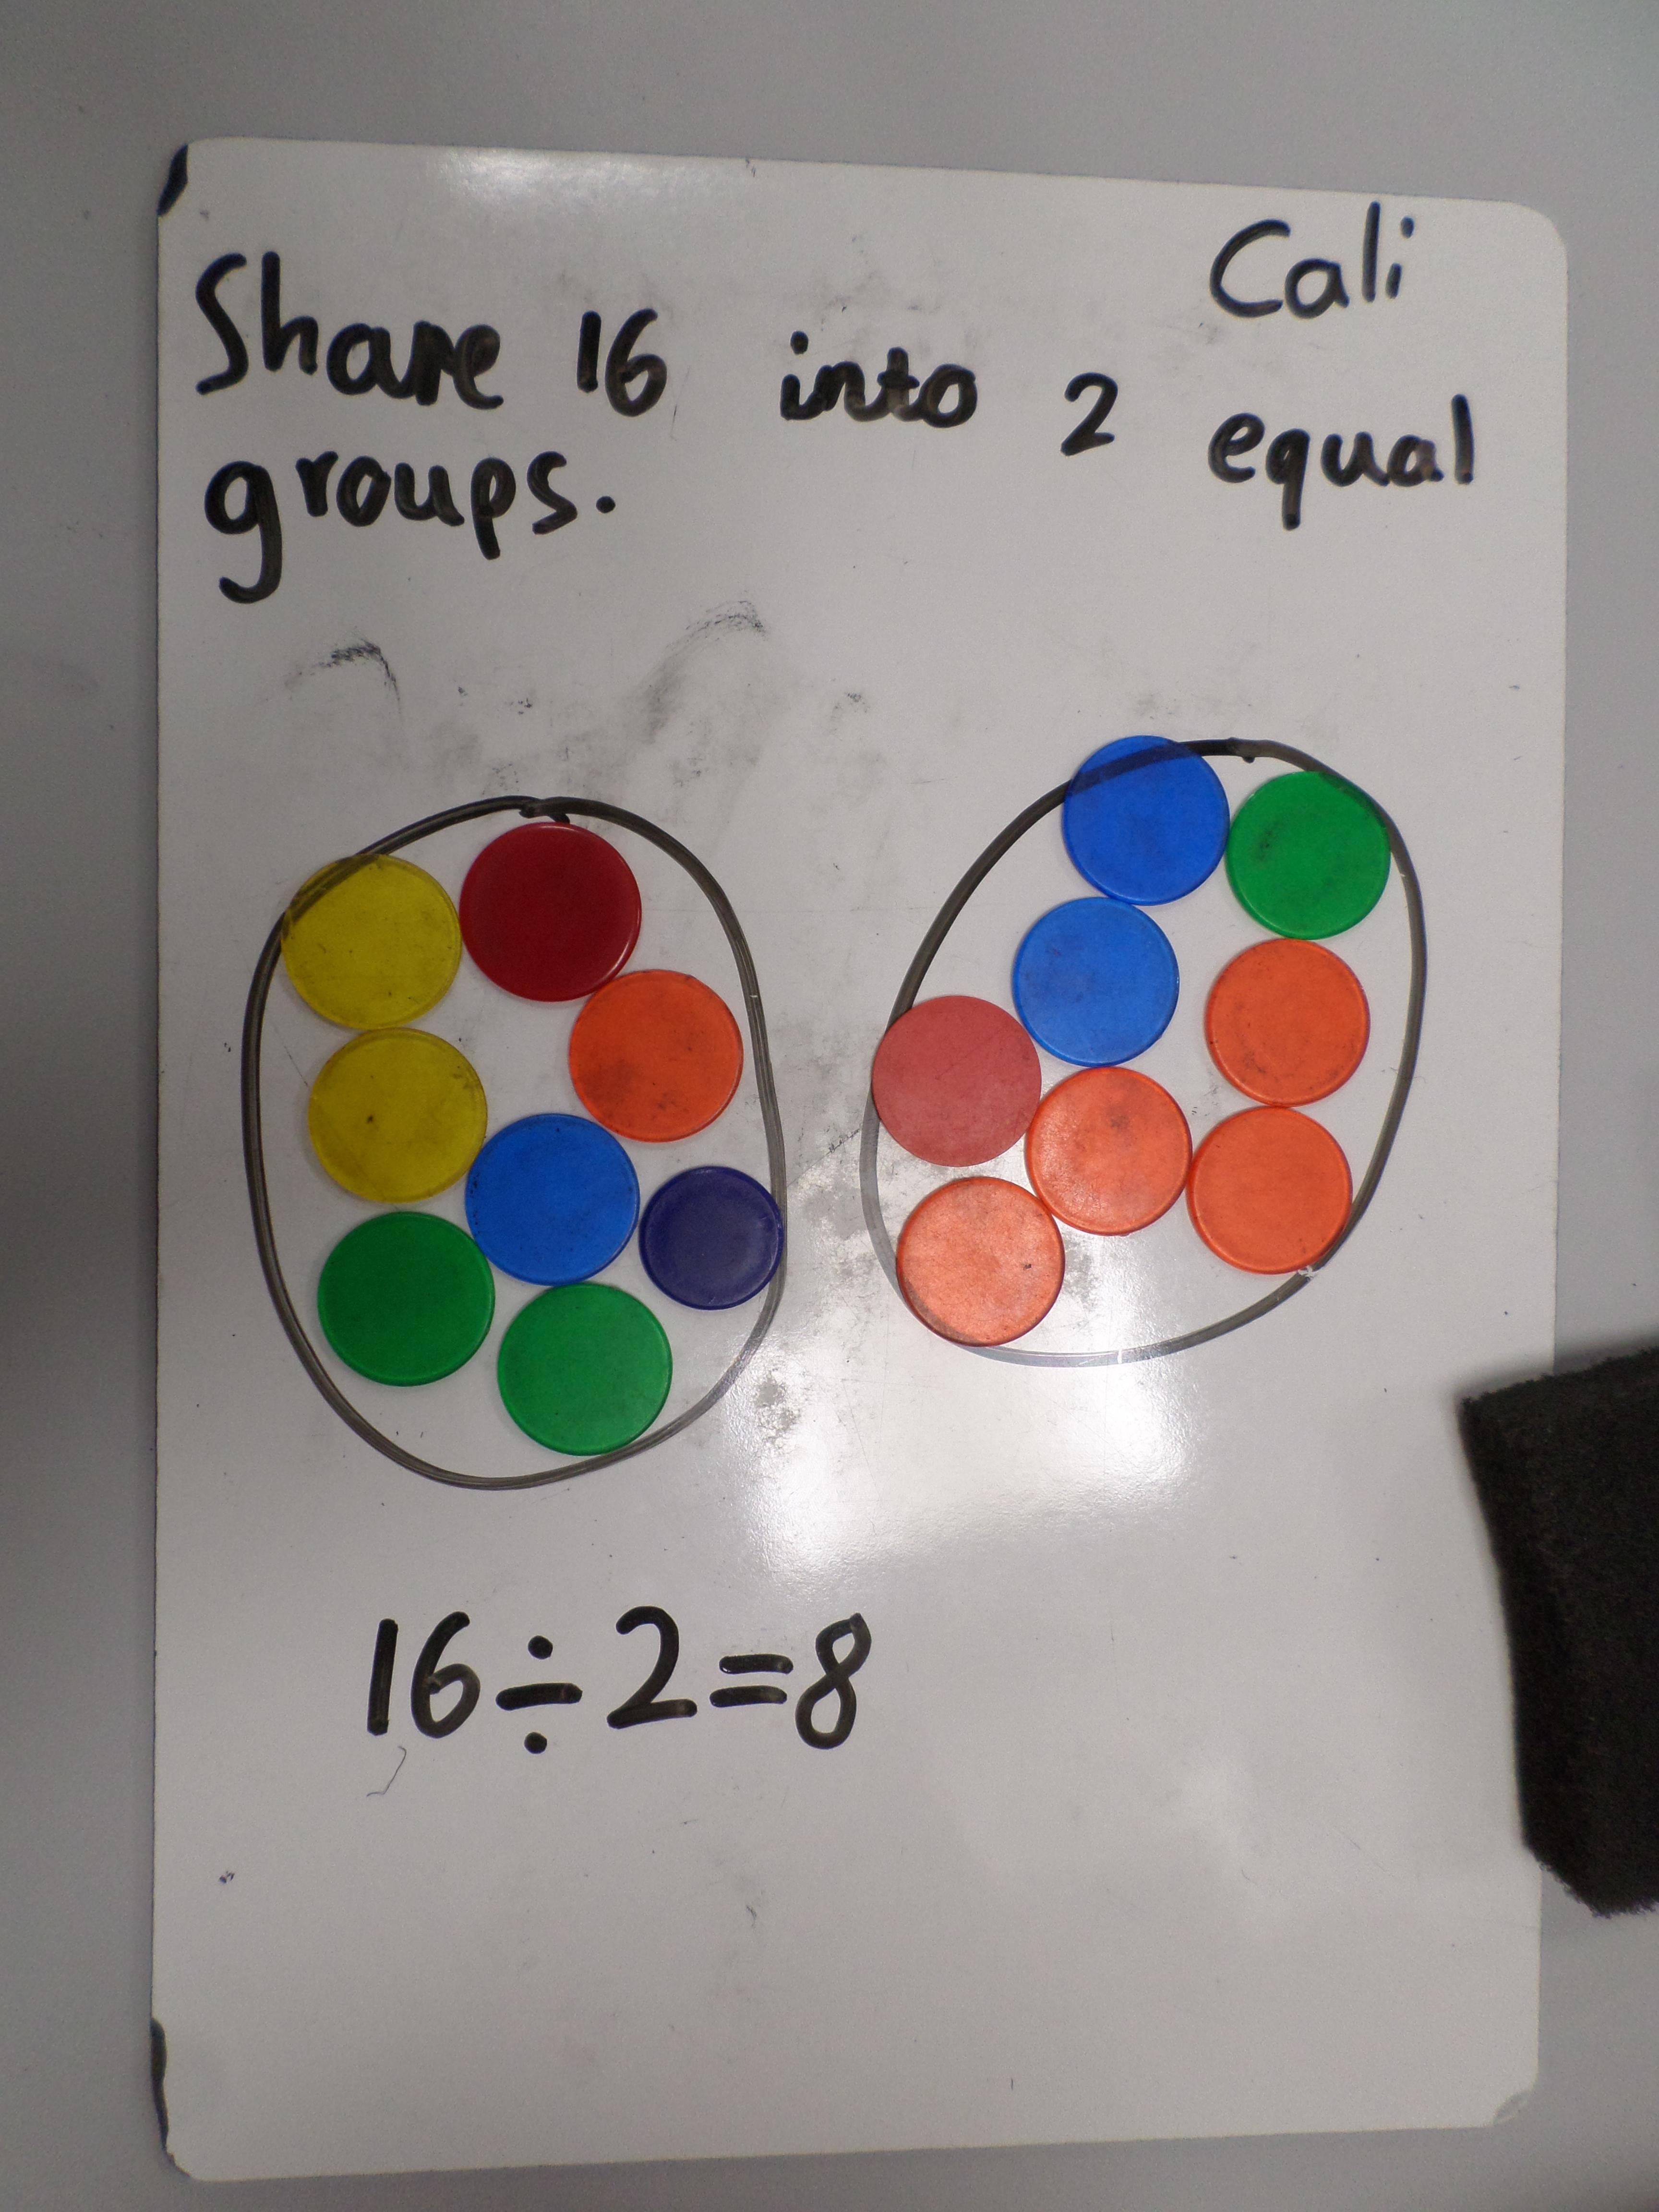 Cali
Share 16 into 2 equal
groups.
16÷2=8